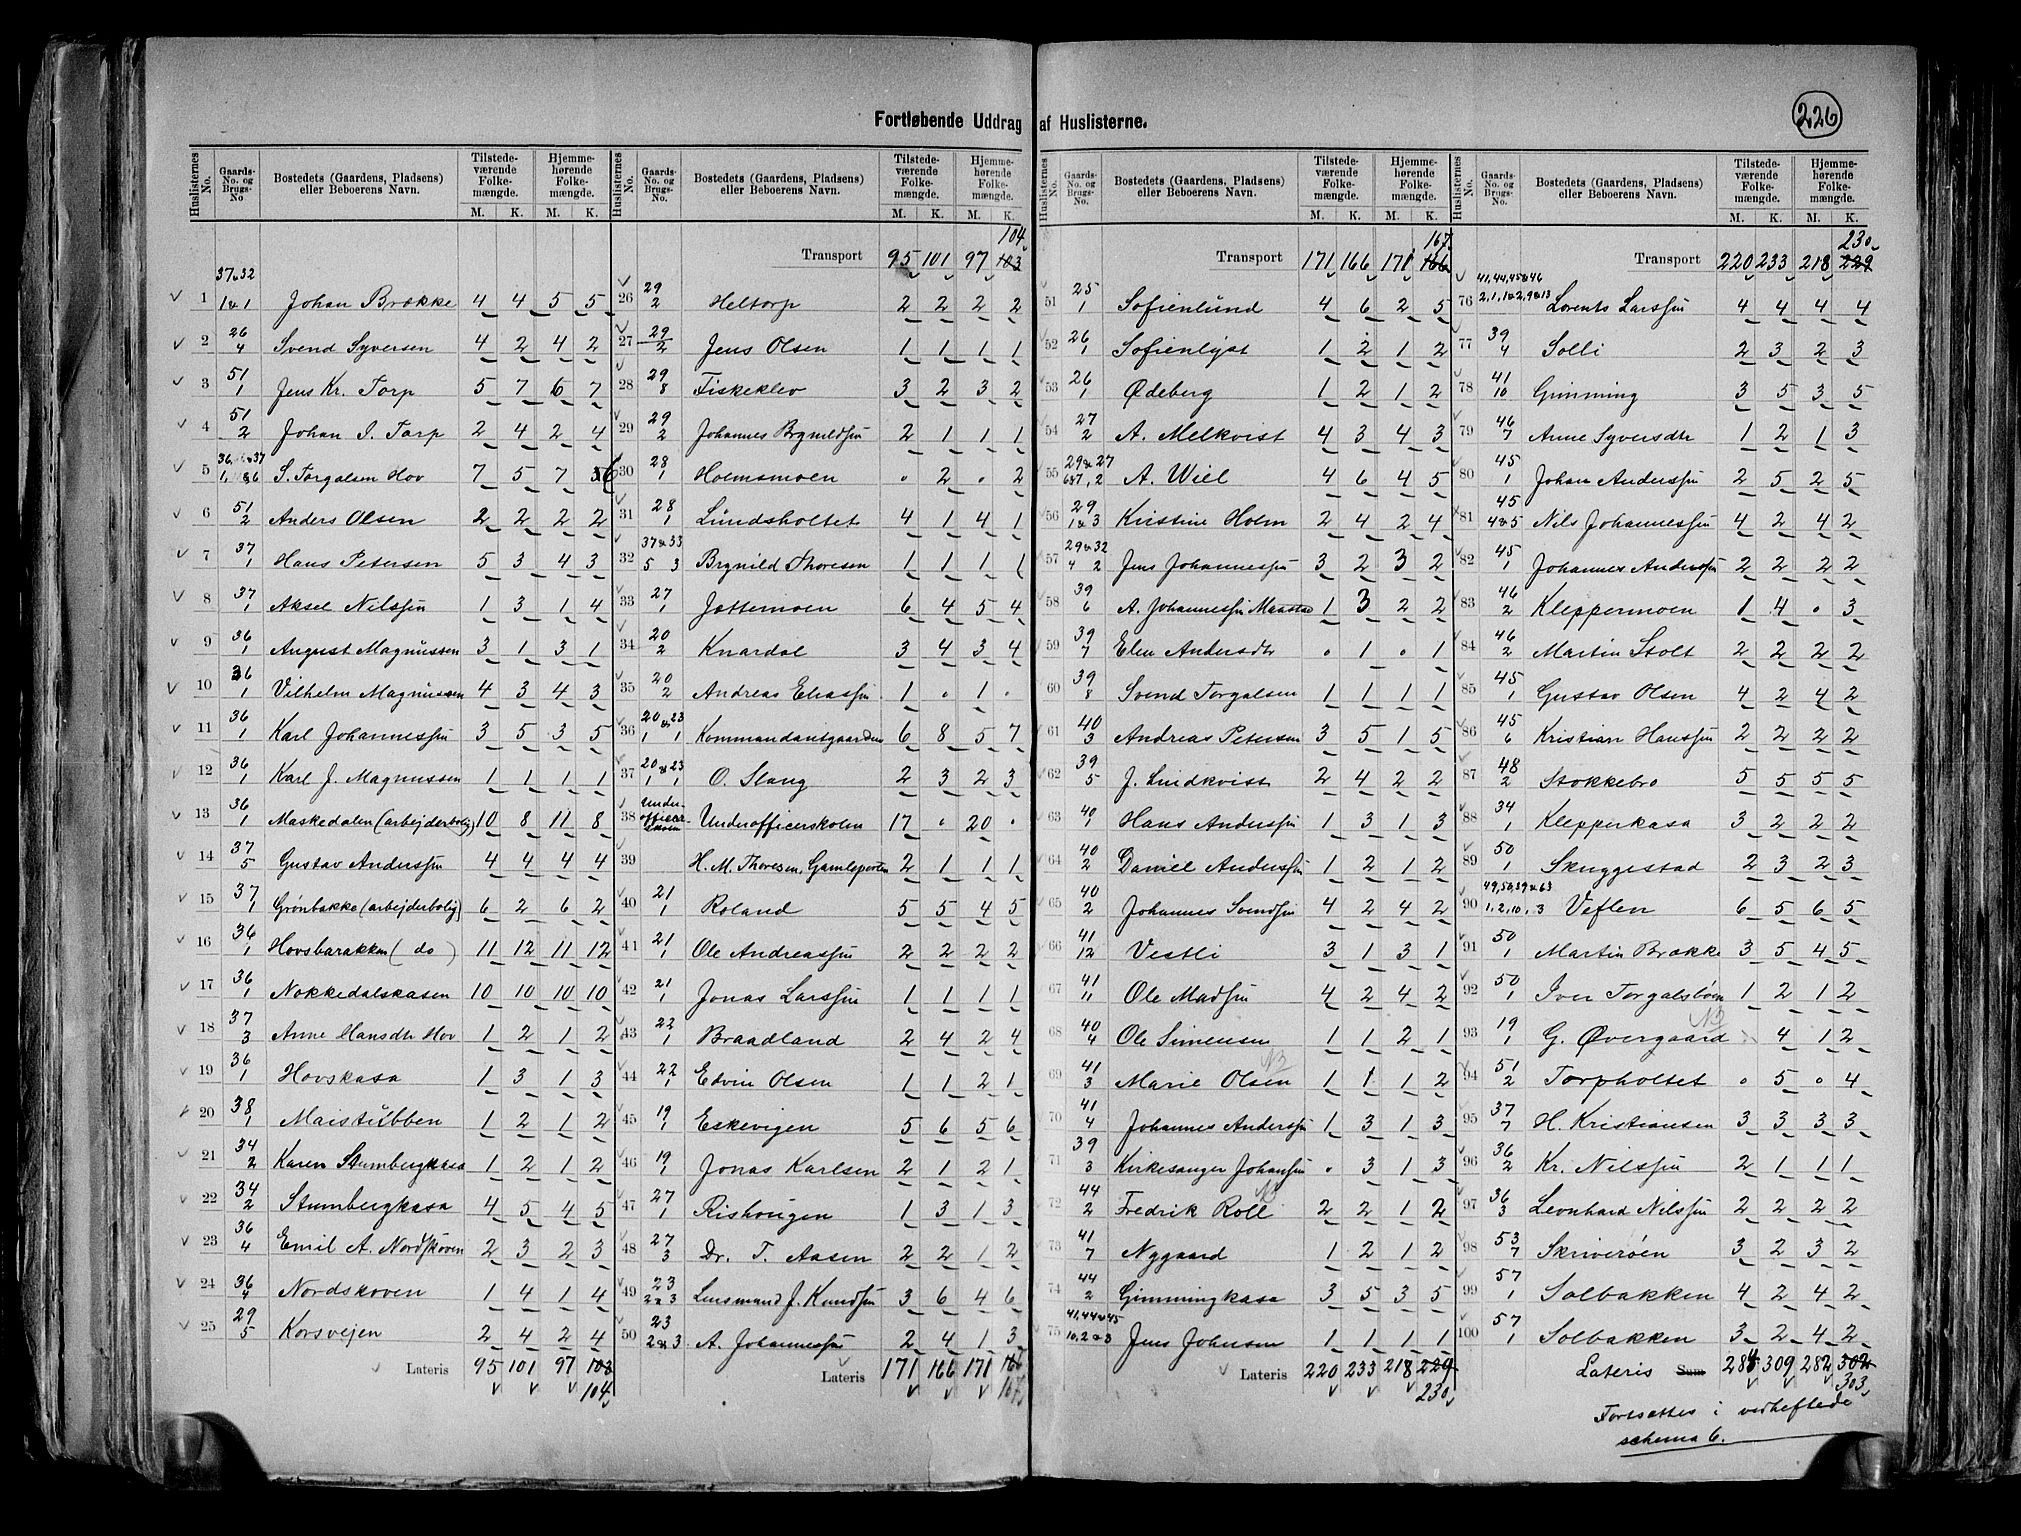 226
Fortløbende Uddrag af Huslisterne.
Huslisternes No. | Gaards-No. og Brugs-No | Bostedets (Gaardens, Pladsens) eller Beboerens Navn. | Tilstedeværende Folkemængde. M. K. | Hjemmehørende Folkemængde. M. K.
1 | 37 & 32 / 1 & 1 | Johan Brække | 4 | 4 | 5 | 5
2 | 26/4 | Svend Syversen | 4 | 2 | 4 | 2
3 | 51/1 | Jens Kr. Torp | 5 | 7 | 6 | 7
4 | 51/2 | Johan I. Torp | 2 | 4 | 2 | 4
5 | S. Torgalsen Hov | 7 | 5 | 7 | 6
6 | 51/2 | Anders Olsen | 2 | 2 | 2 | 2
7 | 37/1 | Hans Petersen | 5 | 3 | 4 | 3
8 | 37/1 | Aksel Nilssøn | 1 | 3 | 1 | 4
9 | 36/1 | August Magnussen | 3 | 1 | 3 | 1
10 | 36/1 | Vilhelm Magnussen | 4 | 3 | 4 | 3
11 | 36/1 | Karl Johannessøn | 3 | 5 | 3 | 5
12 | 36/1 | Karl J. Magnussen | 1 | 1 | 1 | 1
13 | 36/1 | Maskedalen (arbejderbolig) | 10 | 8 | 11 | 8
14 | 37/5 | Gustav Anderssøn | 4 | 4 | 4 | 4
15 | 37/1 | Grønbakke (arbejderbolig) | 6 | 2 | 6 | 2
16 | 36/1 | Hovsbarakken (do) | 11 | 12 | 11 | 12
17 | 36/1 | Nokkedalskasen | 10 | 10 | 10 | 10
18 | 37/3 | Anne Hansdtr Hov | 1 | 2 | 1 | 2
19 | 36/1 | Hovskasa | 1 | 3 | 1 | 3
20 | 38/1 | Maistubben | 1 | 2 | 1 | 2
21 | 34/2 | Karen Stumbergkasa | 1 | 2 | 1 | 2
22 | 34/2 | Stumbergkasa | 4 | 5 | 4 | 5
23 | 36/4 | Emil A. Nordskoven | 2 | 3 | 2 | 3
24 | 36/4 | Nordskoven | 1 | 4 | 1 | 4
25 | 29/5 | Korsvejen | 2 | 4 | 2 | 4
Lateris | 95 | 101 | 97 | 103 104
Huslisternes No. | Gaards-No. og Brugs-No. | Bostedets (Gaardens, Pladsens) eller Beboerens Navn. | Tilstedeværende Folkemængde. M. K. | Hjemmehørende Folkemængde. M. K.
Transport | 95 | 101 | 97 | 104 103
26 | 29/2 | Heltorp | 2 | 2 | 2 | 2
27 | 29/2 | Jens Olsen | 1 | 1 | 1 | 1
28 | 29/8 | Fiskeklev | 3 | 2 | 3 | 2
29 | 29/2 | Johannes Brynildsøn | 2 | 1 | 1 | 1
30 | 28/1 | Holmsmoen | . | 2 | . | 2
31 | 28/1 | Lundsholtet | 4 | 1 | 4 | 1
32 | 37 & 33 / 5 3 | Brynild Thoresen | 1 | 1 | 1 | 1
33 | 27/1 | Jøttemoen | 6 | 4 | 5 | 4
34 | 20/2 | Knardal | 3 | 4 | 3 | 4
35 | 20/2 | Andreas Eliassøn | 1 | . | 1 | .
36 | 20 & 23 / 1 1 | Kommandantgaarden | 6 | 8 | 5 | 7
37 | 20 & 23 / 1 1 | O. Slang | 2 | 3 | 2 | 3
38 | Underofficerskolen | Underofficerskolen | 17 | . | 20 | .
39 | H. M. Thoresen, Gamleporten | 2 | 1 | 1 | 1
40 | 21/1 | Roland | 5 | 5 | 4 | 5
41 | 21/1 | Ole Andreassøn | 2 | 2 | 2 | 2
42 | 21/1 | Jonas Larssøn | 1 | 1 | 1 | 1
43 | 22/1 | Braadland | 2 | 4 | 2 | 4
44 | 22/1 | Edvin Olsen | 1 | 1 | 2 | 1
45 | 19/1 | Eskevigen | 5 | 6 | 5 | 6
46 | 19/1 | Jonas Karlsen | 2 | 1 | 2 | 1
47 | 27/1 | Rishovigen | 1 | 3 | 1 | 3
48 | 27/3 | Dr. T. Aasen | 2 | 2 | 1 | 2
49 | 23 / 2 & 3 | Lensmand J. Knudsøn | 3 | 6 | 4 | 6
50 | 23 / 2 & 3 | A. Johannessøn | 2 | 4 | 1 | 3
Lateris | 171 | 166 | 171 | 166 167
Huslisternes No. | Gaards-No. og Brugs-No. | Bostedets (Gaardens, Pladsens) eller Beboerens Navn. | Tilstedeværende Folkemængde. M. K. | Hjemmehørende Folkemængde. M. K.
Transport | 171 | 166 | 171 | 167 166
51 | 25/1 | Sofienlund | 4 | 6 | 2 | 5
52 | 26/1 | Sofienlyst | 1 | 2 | 1 | 2
53 | 26/1 | Ødeberg | 1 | 2 | 1 | 2
54 | 27/2 | A. Melkvist | 4 | 3 | 4 | 3
55 | 29 & 27 / 6 & 7, 2 | A. Wiel | 4 | 6 | 4 | 5
56 | 29 / 1 & 3 | Kristine Holm | 2 | 4 | 2 | 4
57 | 29 & 32 / 4 2 | Jens Johannessøn | 3 | 2 | 3 | 2
58 | 39/6 | A. Johannessøn Maastad | 1 | 3 | 2 | 2
59 | 39/7 | Elen Andersdtr | . | 1 | . | 1
60 | 39/8 | Svend Torgalsen | 1 | 1 | 1 | 1
61 | 40/3 | Andreas Petersen | 3 | 5 | 1 | 5
62 | 39/5 | J. Lindkvist | 2 | 4 | 2 | 2
63 | 40/1 | Hans Anderssøn | 1 | 3 | 1 | 3
64 | 40/2 | Daniel Anderssøn | 1 | 2 | 1 | 2
65 | 40/2 | Johannes Svendsøn | 4 | 2 | 4 | 2
66 | 41/12 | Vestli | 3 | 1 | 3 | 1
67 | 41/11 | Ole Madsøn | 4 | 2 | 4 | 2
68 | 40/4 | Ole Simensen | 1 | 1 | 2 | 1
69 | 41/3 | Marie Olsen | 1 | 1 | 1 | 2
70 | 41/4 | Johannes Anderssøn | 1 | 3 | 1 | 3
71 | 39/3 | Kirkesanger Johansøn | . | 3 | 1 | 3
72 | 44/2 | Fredrik Roll | 2 | 2 | 1 | 2
73 | 41/7 | Nygaard | 1 | 2 | 1 | 2
74 | 44/2 | Gimmingkasa | 3 | 5 | 3 | 5
75 | 41, 44 & 45 / 10, 2 & 3 | Jens Johnsen | 1 | 1 | 1 | 1
Lateris | 220 | 233 | 218 | 229 230
Huslisternes No. | Gaards-No. og Brugs-No. | Bostedets (Gaardens, Pladsens) eller Beboerens Navn. | Tilstedeværende Folkemængde. M. K. | Hjemmehørende Folkemængde. M. K.
Transport | 220 | 233 | 218 | 230 229
76 | 41, 44, 45 & 46 / 2, 1, 1 & 2, 9 & 13 | Lorents Larssøn | 4 | 4 | 4 | 4
77 | 39/4 | Solli | 2 | 3 | 2 | 3
78 | 41/10 | Gimming | 3 | 5 | 3 | 5
79 | 46/7 | Anne Syversdtr | 1 | 2 | 1 | 3
80 | 45/1 | Johan Anderssøn | 2 | 5 | 2 | 5
81 | 45 / 4 & 5 | Nils Johannessøn | 4 | 2 | 4 | 2
82 | 45/1 | Johannes Anderssøn | 2 | 2 | 2 | 2
83 | 46/2 | Kleppermoen | 1 | 4 | . | 3
84 | 46/2 | Martin Stolt | 2 | 2 | 2 | 2
85 | 45/1 | Gustav Olsen | 4 | 2 | 4 | 2
86 | 45/6 | Kristian Hanssøn | 2 | 2 | 2 | 2
87 | 48/2 | Stokkebro | 5 | 5 | 5 | 5
88 | 34/1 | Klepperkasa | 3 | 2 | 2 | 2
89 | 50/1 | Skuggestad | 2 | 3 | 2 | 3
90 | 49, 50, 39 & 63 / 1, 2, 10, 3 | Veflen | 6 | 5 | 6 | 5
91 | 50/1 | Martin Brække | 3 | 5 | 4 | 5
92 | 50/1 | Iver Torgalsbøen | 1 | 2 | 1 | 2
93 | 19/1 | G. Øvergaard | 4 | 1 | 2
94 | 51/2 | Torpholtet | . | 5 | . | 4
95 | 37/7 | H. Kristiansen | 3 | 3 | 3 | 3
96 | 36/2 | Kr. Nilssøn | 2 | 1 | 1 | 1
97 | 36/3 | Leonhard Nilssøn | 2 | 2 | 2 | 2
98 | 53/7 | Skriverøen | 3 | 2 | 3 | 2
99 | 57/1 | Solbakken | 4 | 2 | 4 | 2
100 | 57/1 | Solbakken | 3 | 2 | 4 | 2
Lateris Sum | 284 | 309 | 282 | 302 303
Fortsættes i vedheftede
schema 6.